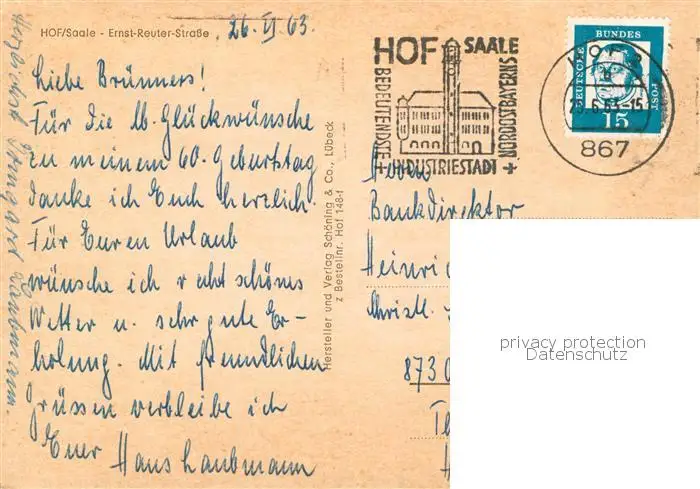 HOF/Saale - Ernst-Reuter-Straße
26. VI 63.
Liebe Brünners!
Für die lb. Glückwünsche
zu meinem 60. Geburtstag
danke ich Euch herzlich.
Für Euren Urlaub
wünsche ich recht schönes
Wetter u. sehr gute Er-
holung. Mit freundlichen
Grüssen verbleibe ich
Euer Hans Laubmann
Herzlichst Irmgard Laubmann.
Hersteller und Verlag Schöning & Co., Lübeck
z Bestellnr. Hof 148-1
HOF SAALE
BEDEUTENDSTE
INDUSTRIESTADT
NORDOSTBAYERNS
HOF
6.63-15
867
DEUTSCHE BUNDES POST
15
Herrn
Bankdirektor
Heinri
Christl.
873
privacy protection
Datenschutz